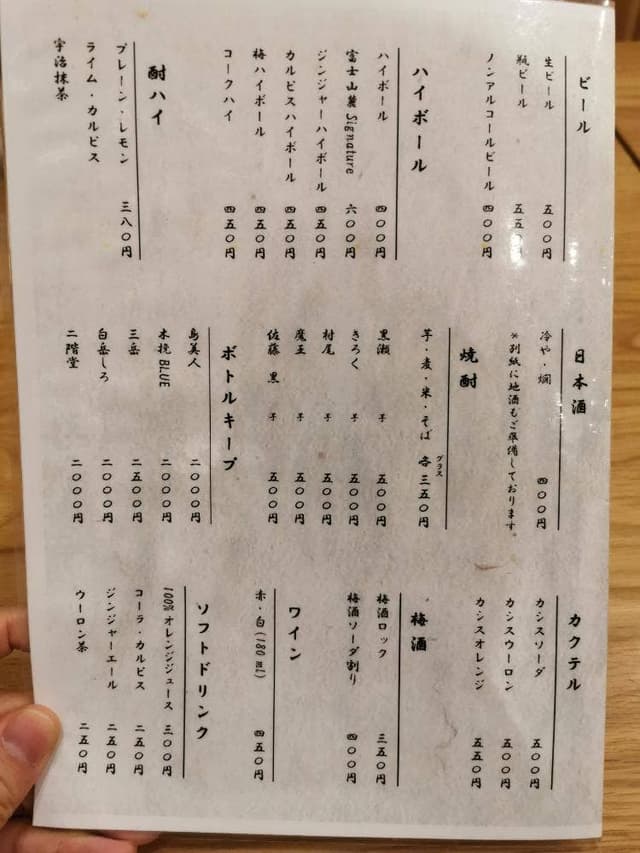 ビール
生ビール 五〇〇円
瓶ビール 五五〇円
ノンアルコールビール 四〇〇円
ハイボール
ハイボール 四〇〇円
富士山麓Signature 六〇〇円
ジンジャーハイボール 四五〇円
カルピスハイボール 四五〇円
梅ハイボール 四五〇円
コークハイ 四五〇円
酎ハイ
プレーン・レモン 三八〇円
ライム・カルピス
宇治抹茶
日本酒
冷や・燗 四〇〇円
*別紙に地酒もご準備しております。
焼酎
芋・麦・米・そば 各 グラス 三五〇円
黒瀬 芋 五〇〇円
きろく 芋 五〇〇円
村尾 芋 五〇〇円
魔王 芋 五〇〇円
佐藤 黒 芋 五〇〇円
ボトルキープ
島美人 二〇〇〇円
木挽BLUE 二〇〇〇円
三岳 二五〇〇円
白岳しろ 二〇〇〇円
二階堂 二〇〇〇円
カクテル
カシスソーダ 五〇〇円
カシスウーロン 五〇〇円
カシスオレンジ 五五〇円
梅酒
梅酒ロック 三五〇円
梅酒ソーダ割り 四〇〇円
ワイン
赤・白(180ml) 四五〇円
ソフトドリンク
100%オレンジジュース 三〇〇円
コーラ・カルピス 二五〇円
ジンジャーエール 二五〇円
ウーロン茶 二五〇円